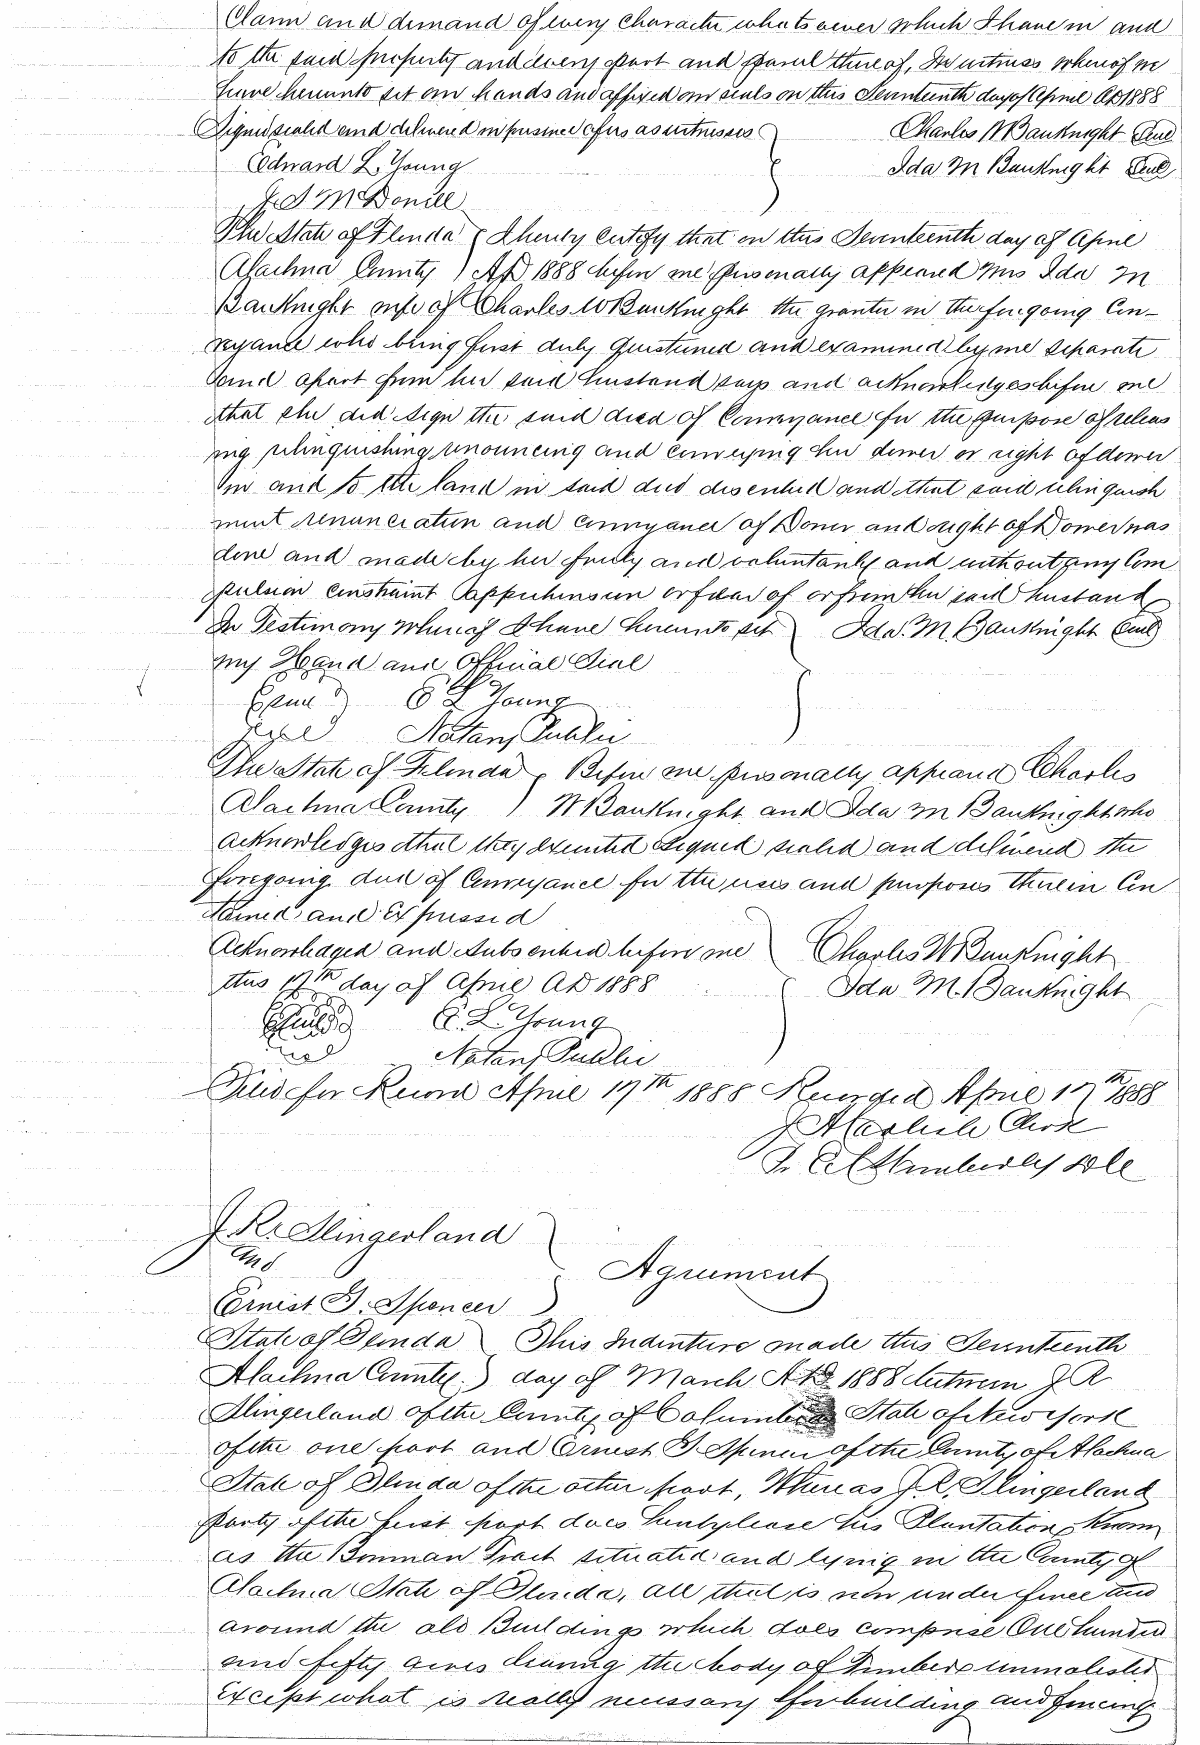 Claim and demand of every character whatsoever which I have in and
to the said property and every part and parcel thereof, In witness whereof we
have hereunto set our hands and affixed our seals on this Seventeenth day of April AD 1888
Signed sealed and delivered in presence of us as witnesses } Charles W BauKnight Seal
Edward L. Young } Ida M BauKnight Seal
J. S McDonell
The State of Florida } I hereby certify that on this Seventeenth day of April
Alachua County } AD 1888 before me personally appeared Mrs Ida M
BauKnight wife of Charles W BauKnight the grantor in the foregoing Con-
veyance who being first duly questioned and examined by me separate
and apart from her said husband says and acknowledges before me
that she did sign the said deed of Conveyance for the purpose of releas
ing relinquishing renouncing and conveying her dower or right of dower
in and to the land in said deed described and that said relinquish
ment renunciation and conveyance of Dower and right of Dower was
done and made by her freely and voluntarily and without any Com
pulsion constraint apprehension or fear of or from her said husband
In Testimony whereof I have hereunto set } Ida. M. BauKnight Seal
my Hand and Official Seal
E L Young
Notary Public
The State of Florida } Before me personally appeared Charles
Alachua County } W BauKnight and Ida M BauKnight who
acknowledges that they executed signed sealed and delivered the
foregoing deed of Conveyance for the uses and purposes therein Con
tained and Expressed
Acknowledged and Subscribed before me } Charles W BauKnight
this 17th day of April AD 1888 } Ida M. BauKnight
Seal E. L. Young
Notary Public
Filed for Record April 17th 1888 Recorded April 17th 1888
Clerk
J. R. Slingerland
and
Agreement
Ernest G. Spencer
State of Florida } This Indenture made this Seventeenth
Alachua County. } day of March AD 1888 between J R
Slingerland of the County of Columbia State of New York
of the one part and Ernest G. Spencer of the County of Alachua
State of Florida of the other part, Whereas J. R. Slingerland
party of the first part does hereby lease his Plantation, Known
as the Bowman Tract situated and lying in the County of
Alachua State of Florida, all that is now under fence and
around the old Buildings which does comprise One hundred
and fifty acres leaving the body of timber unmolested
Except what is really necessary for building and fencing